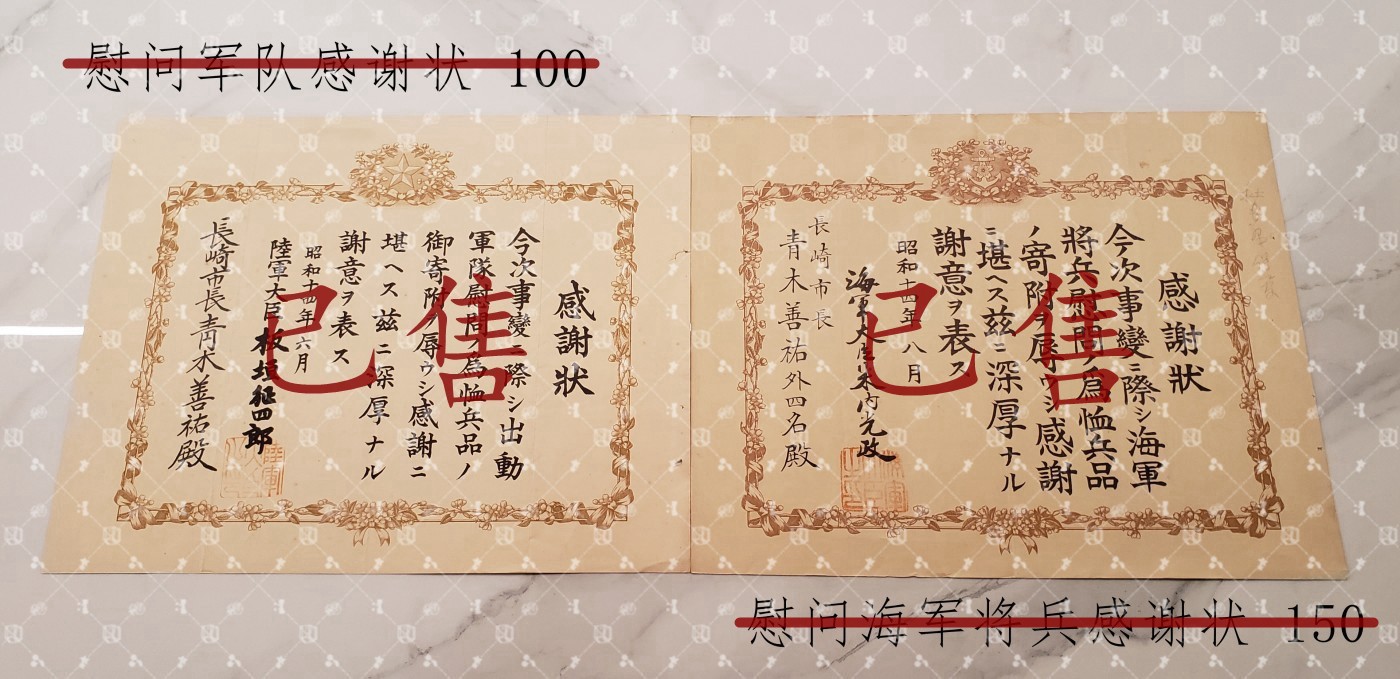 慰问军队感谢状 100
感謝狀
今次事變ニ際シ出動
軍隊慰問ノ為恤兵品ノ
御寄附ヲ辱ウシ感謝ニ
堪ヘス茲ニ深厚ナル
謝意ヲ表ス
昭和十四年六月
陸軍大臣 板垣征四郎
長崎市長青木善祐殿
已售
感謝狀
今次事變ニ際シ海軍
將兵慰問ノ為恤兵品
ノ寄附ヲ辱ウシ感謝
ニ堪ヘス茲ニ深厚ナル
謝意ヲ表ス
昭和十四年八月
海軍大臣米內光政
長崎市長
青木善祐外四名殿
已售
慰问海军将兵感谢状 150